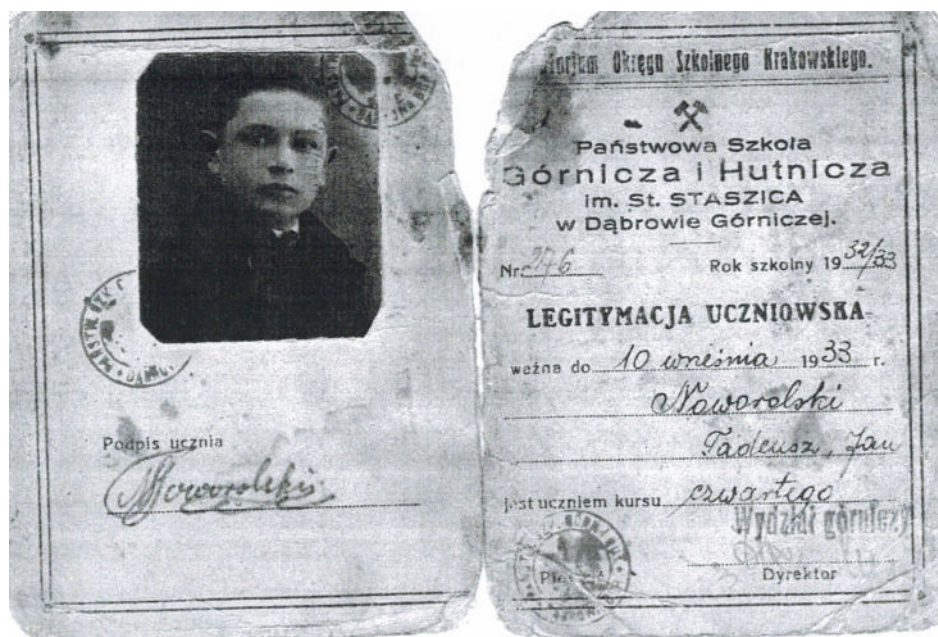 Podpis ucznia
Noworolski
Okręgu Szkolnego Krakowskiego.
Państwowa Szkoła
Górnicza i Hutnicza
im. St. STASZICA
w Dąbrowie Górniczej.
Nr. 276 Rok szkolny 1932/33
LEGITYMACJA UCZNIOWSKA
ważna do 10 września 1933 r.
Noworolski
Tadeusz, Jan
jest uczniem kursu czwartego
Wydział górniczy
Dyrektor